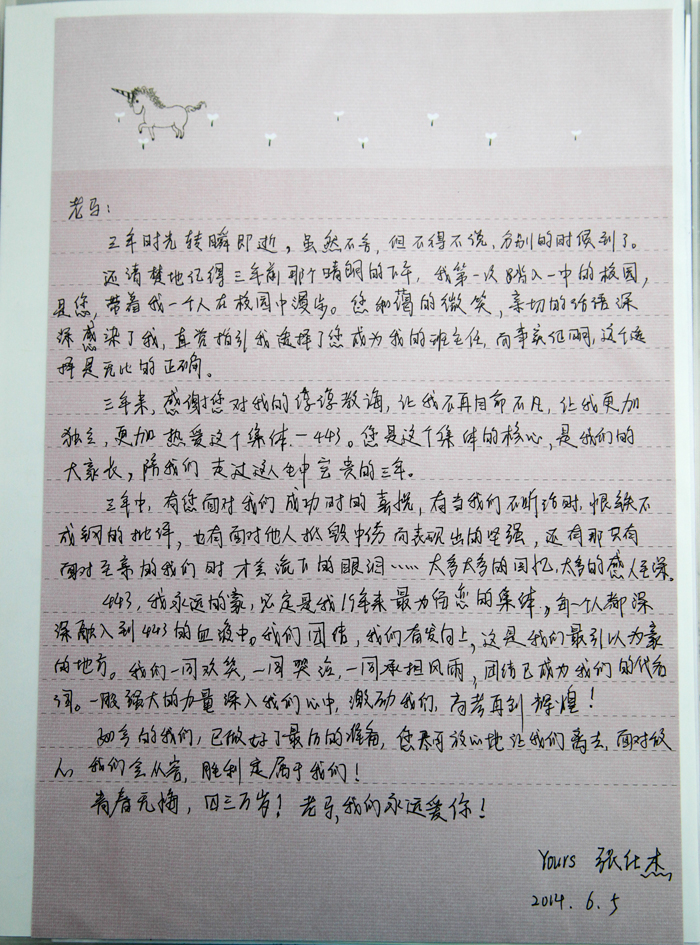 老马：
三年时光转瞬即逝，虽然不舍，但不得不说，分别的时候到了。
还清楚地记得三年前那个晴朗的下午，我第一次踏入一中的校园，
是您，带着我一个人在校园中漫步。您和蔼的微笑，亲切的话语深
深感染了我，直觉指引我选择了您成为我的班主任，而事实证明，这个选
择是无比的正确。
三年来，感谢您对我的谆谆教诲，让我不再自命不凡，让我更加
独立，更加热爱这个集体—443。您是这个集体的核心，是我们的
大家长，陪我们走过这人生中宝贵的三年。
三年中，有您面对我们成功时的喜悦，有当我们不听话时，恨铁不
成钢的批评，也有面对他人诋毁中伤而表现出的坚强，还有那只有
面对至亲的我们时才会流下的眼泪……太多太多的回忆，太多的感人至深。
443，我永远的家，必定是我19年来最为留恋的集体，每一个人都深
深融入到443的血液中。我们团结，我们奋发向上，这是我们最引以为豪
的地方。我们一同欢笑，一同哭泣，一同承担风雨，团结已成为我们的代名
词。一股强大的力量深入我们心中，激励我们，高考再创辉煌！
的我们，已做好了最后的准备，您尽可放心地让我们离去，面对
我们会从容，胜利定属于我们！
青春无悔，四三万岁！老马，我们永远爱你！
Yours 张仕杰
2014.6.5